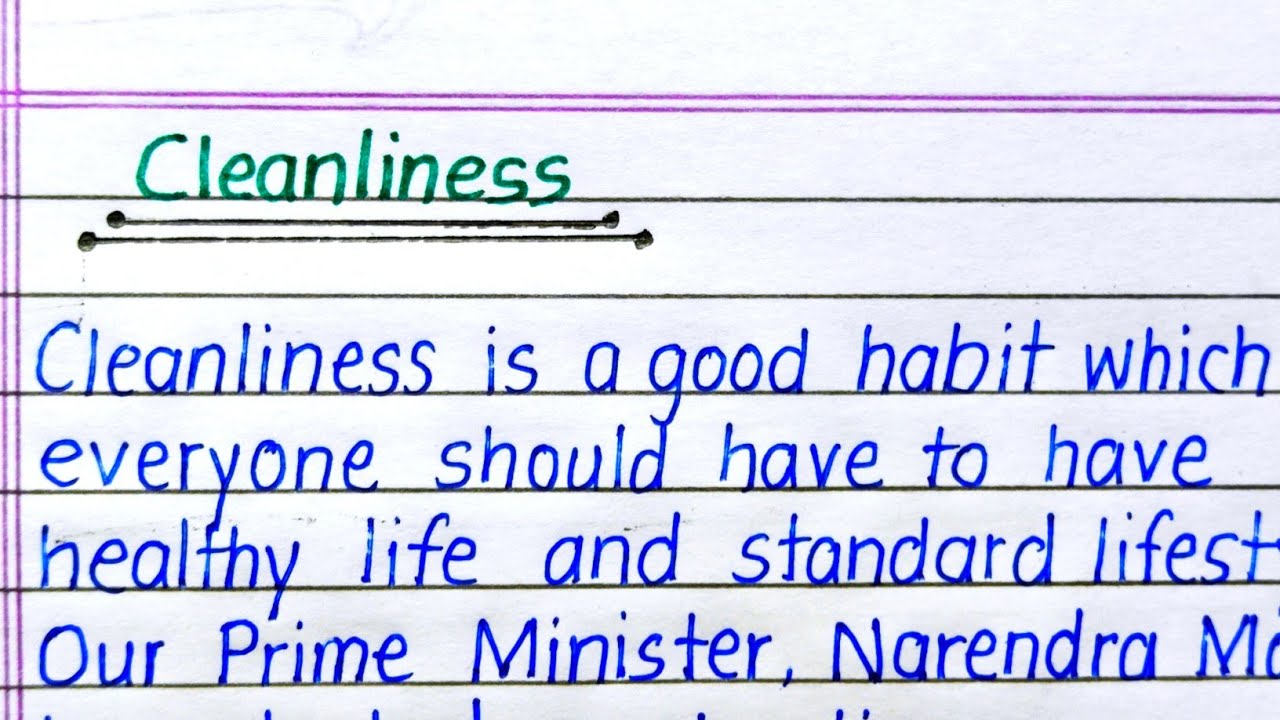 Cleanliness
Cleanliness is a good habit which
everyone should have to have
healthy life and standard lifest
Our Prime Minister, Narendra Mo